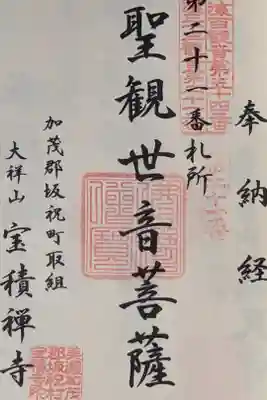 奉納経
第二十一番札所
聖観世音菩薩
加茂郡坂祝町取組
大祥山 宝積禅寺
佛法僧寶